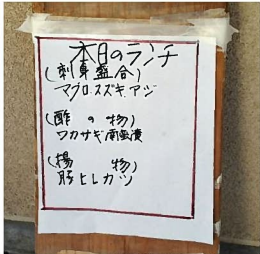 本日のランチ
(刺身盛合)
マグロ、スズキ、アジ
(酢の物)
ワカサギ南蛮漬
(揚物)
豚ヒレカツ